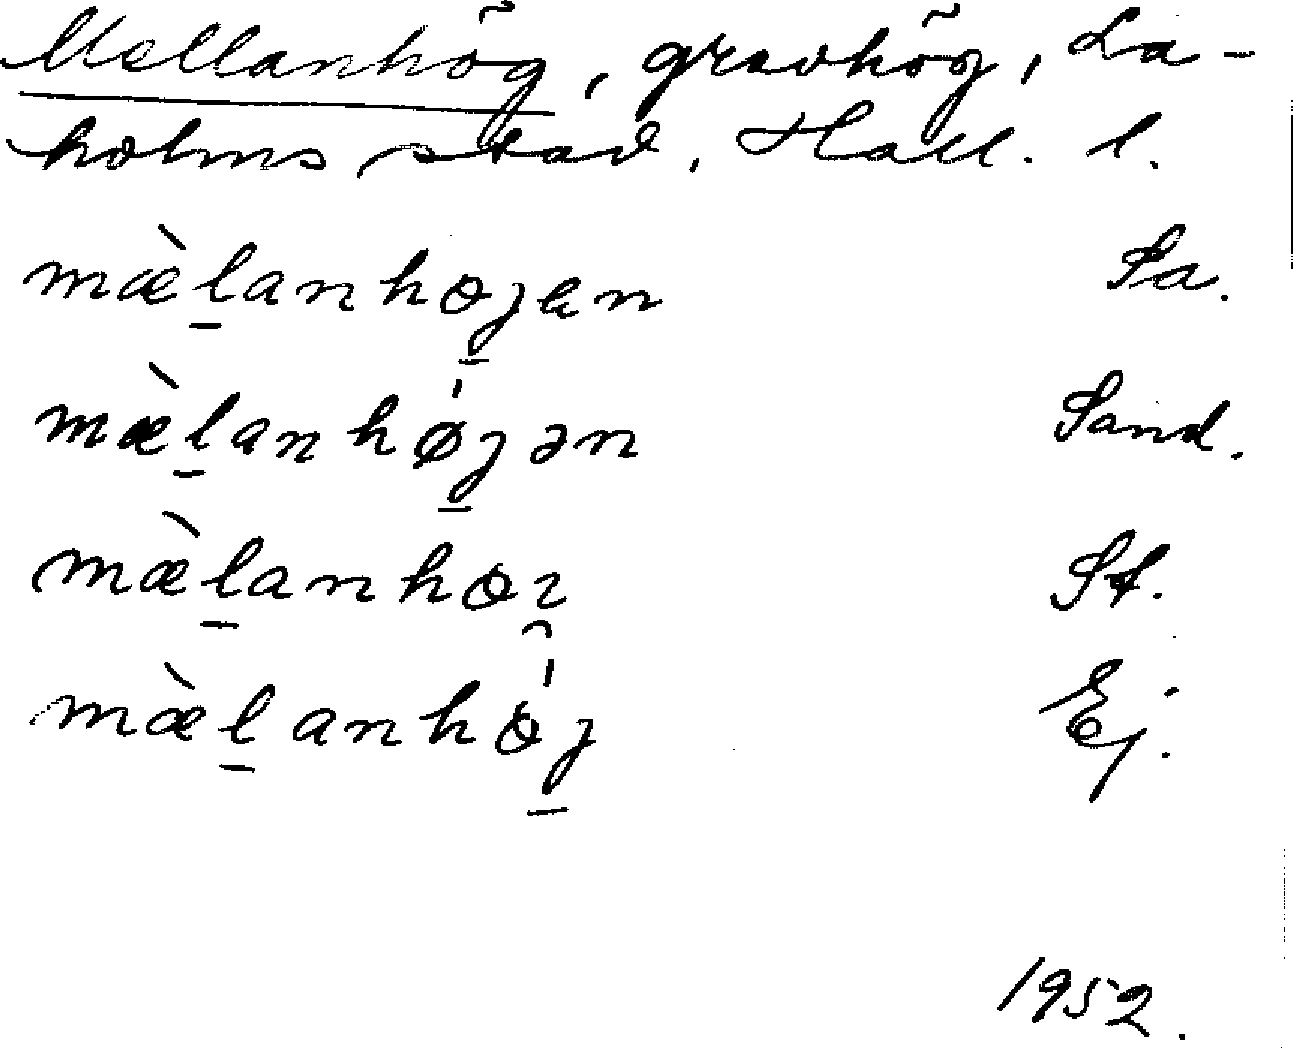 Mellanhög, gravhög, La-
holms stad, Hall. l.
mæ̀l̠anhøj̠en Sa.
mæ̀l̠anhǿj̠ən Sand.
mæ̀l̠anhøı̯ St.
mæ̀l̠anhǿj̠ Ej.
1952.